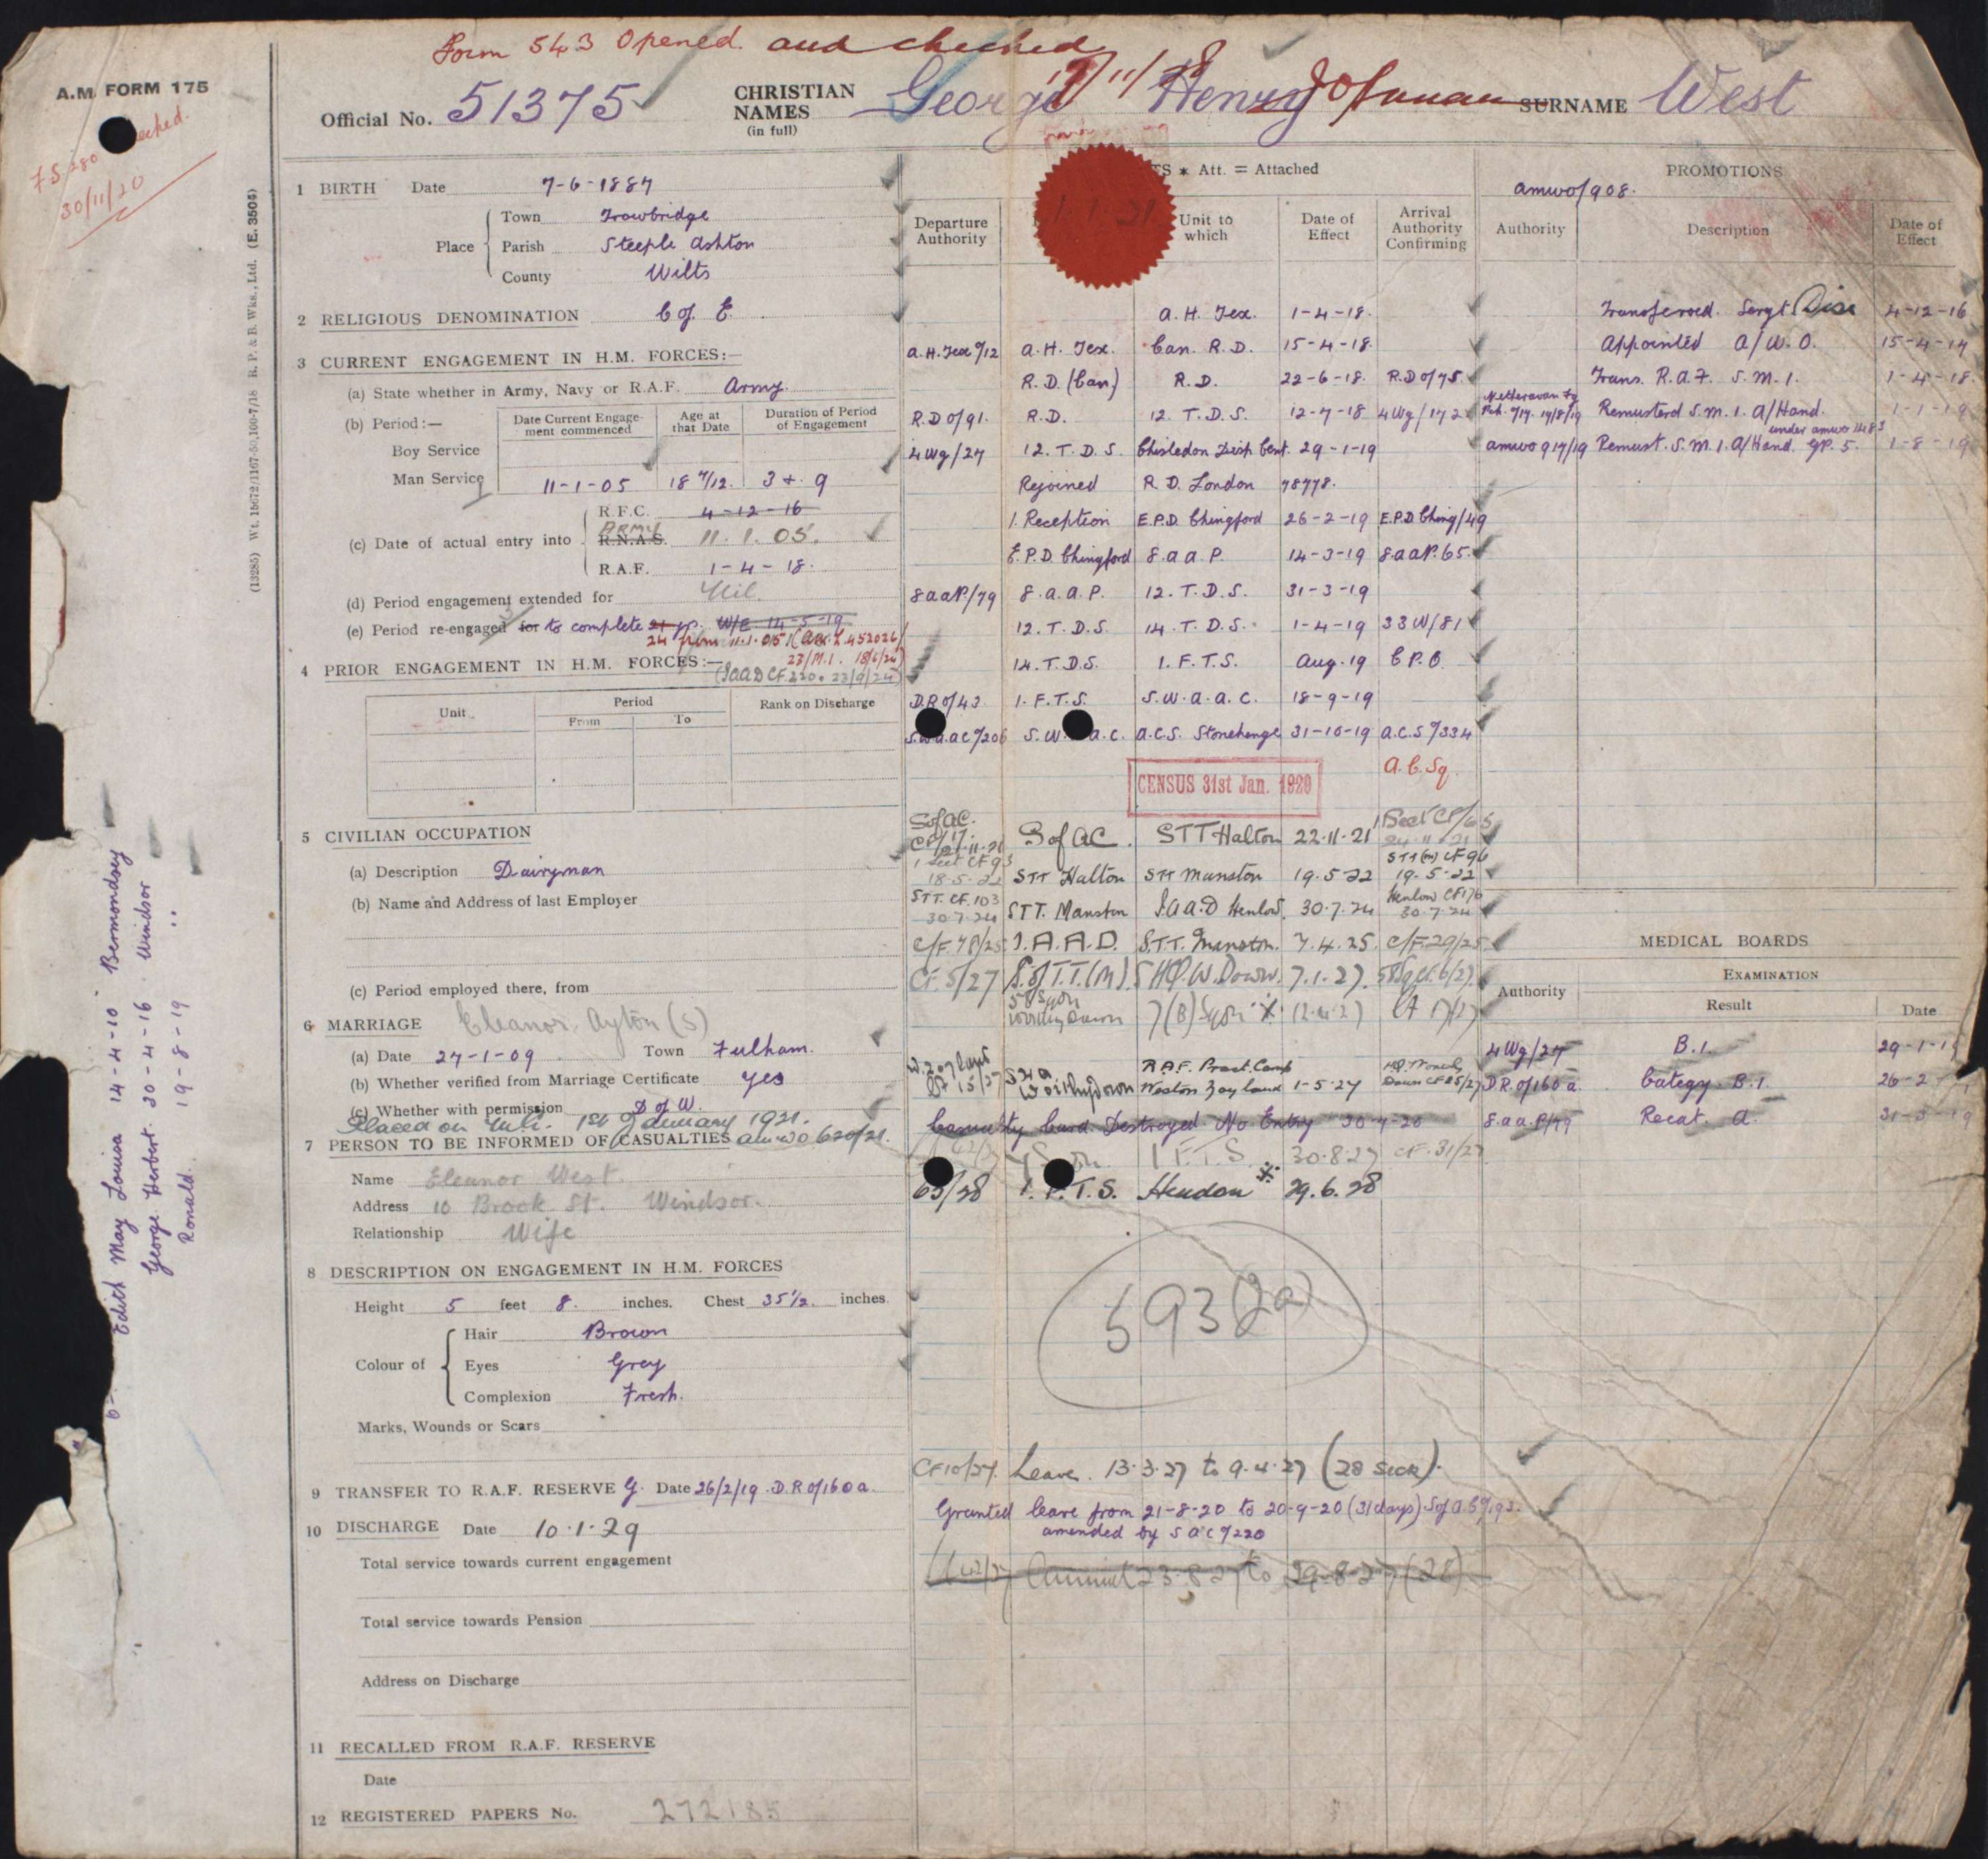 Form 543 Opened. and checked
A.M. FORM 175
Official No. 51375
CHRISTIAN NAMES (in full) George Henry
SURNAME West
FS 280
30/11/20
(13285) Wt. 15672/1167-50,160-7/18 R. P. & B. Wks., Ltd. (E. 3504)
1 BIRTH Date 7-6-1887
Place
Town Trowbridge
Parish Steeple Ashton
County Wilts
2 RELIGIOUS DENOMINATION C of E.
3 CURRENT ENGAGEMENT IN H.M. FORCES:—
(a) State whether in Army, Navy or R.A.F. Army.
(b) Period:—
Date Current Engagement commenced
Age at that Date
Duration of Period of Engagement
Boy Service
Man Service 11-1-05 18 7/12. 3 + 9
(c) Date of actual entry into
R.F.C. 4-12-16
R.N.A.S. Army 11.1.05.
R.A.F. 1-4-18.
(d) Period engagement extended for Nil.
(e) Period re-engaged for to complete 21 yrs. W/E 14-5-19
24 from 11.1.05
23/M.1. 18/6/24)
(SAAD CF 220. 23/9/24)
4 PRIOR ENGAGEMENT IN H.M. FORCES:—
Unit
Period
From To
Rank on Discharge
5 CIVILIAN OCCUPATION
(a) Description Dairyman
(b) Name and Address of last Employer
(c) Period employed there, from
6 MARRIAGE Eleanor Ayton (S)
(a) Date 27-1-09 Town Fulham.
(b) Whether verified from Marriage Certificate yes
(c) Whether with permission D of W.
Placed on 1st January 1921. amwo 620/21.
7 PERSON TO BE INFORMED OF CASUALTIES
Name Eleanor West
Address 10 Brook St. Windsor.
Relationship Wife
8 DESCRIPTION ON ENGAGEMENT IN H.M. FORCES
Height 5 feet 8. inches. Chest 35½ inches.
Colour of
Hair Brown
Eyes Grey
Complexion Fresh.
Marks, Wounds or Scars
9 TRANSFER TO R.A.F. RESERVE G. Date 26/2/19. D.R.O/160a.
10 DISCHARGE Date 10.1.29
Total service towards current engagement
Total service towards Pension
Address on Discharge
11 RECALLED FROM R.A.F. RESERVE
Date
12 REGISTERED PAPERS No. 272185
Edith May Louisa 14-4-10 Bermondsey
George Herbert 30-4-16 Windsor
Ronald. 19-8-19 "
* Att. = Attached
1.1.21
Departure Authority
Unit to which
Date of Effect
Arrival Authority Confirming
A.H. Tex. 1-4-18.
A.H. Tex 9/12 A.H. Tex. Can. R.D. 15-4-18.
R.D. (Can) R.D. 22-6-18. R.D 0/75.
R.D 0/91. R.D. 12. T.D.S. 12-7-18 4Wg/172
4Wg/27 12. T.D.S. Chisledon Disp. Cent. 29-1-19
Rejoined R.D. London 78778.
1. Reception E.P.D. Chingford 26-2-19 E.P.D Ching/49
E.P.D. Chingford 8.a.a.P. 14-3-19 8.aaP. 65.
8aaP/79 8.a.a.P. 12. T.D.S. 31-3-19
12. T.D.S. 14. T.D.S. 1-4-19 33W/81
14. T.D.S. 1. F.T.S. Aug. 19 C.P.O.
D.R.O/43. 1. F.T.S. S.W.a.a.C. 18-9-19
S.W.a.aC 9/206 S.W. a.C. A.C.S. Stonehenge 31-10-19 A.C.S 9/334
A.C. Sq.
CENSUS 31st Jan. 1920
S of AC. S of AC. STT Halton 22.11.21
18.5.22 STT Halton STT Manston 19.5.22 STT(M) CF 96 19.5.22
STT. CF. 103 30.7.24 STT. Manston S.A.A.D Henlow. 30.7.24 Henlow CF 176 30.7.24
C/F. 78/25 I.A.A.D. S.T.T. Manston. 7.4.25. C/F. 29/25
CF. 5/27 S. of T.T. (M). S HQ W. Down. 7.1.27.
58 Sqdn Worthy Down 7 (B) Sqdn 12.4.27
Worthydown R.A.F. Pract. Camp Weston Zoyland 1-5-27
Casualty Card Destroyed No Entry 30-4-20
1 F.T.S. 30.8.27 CF. 31/27
63/28 1. F.T.S. Hendon 29.6.28
593 (2a)
CF 10/27. Leave. 13.3.27 to 9.4.27 (28 Sick).
Granted leave from 21-8-20 to 20-9-20 (31 days) S of A.C 9/193.
amended by S A C 9/220
Annual 23.8.27 to 29.8.27 (28)
PROMOTIONS
amwo/908.
Authority
Description
Date of Effect
Transferred. Sergt. Disc 4-12-16
Appointed A/W.O. 15-4-17
Trans. R.A.F. S.M.1. 1-4-18.
Remusterd S.M.1. A/Hand. 1-1-19
under amwo 1483
amwo 917/19 Remust. S.M.1. A/Hand. GP. 5. 1-8-19
MEDICAL BOARDS
Authority
EXAMINATION
Result
Date
4Wg/27 B.1. 29-1-19
D.R.O/160a. Category B.1. 26-2
8.a.a.P/79 Recat. A. 31-3-19